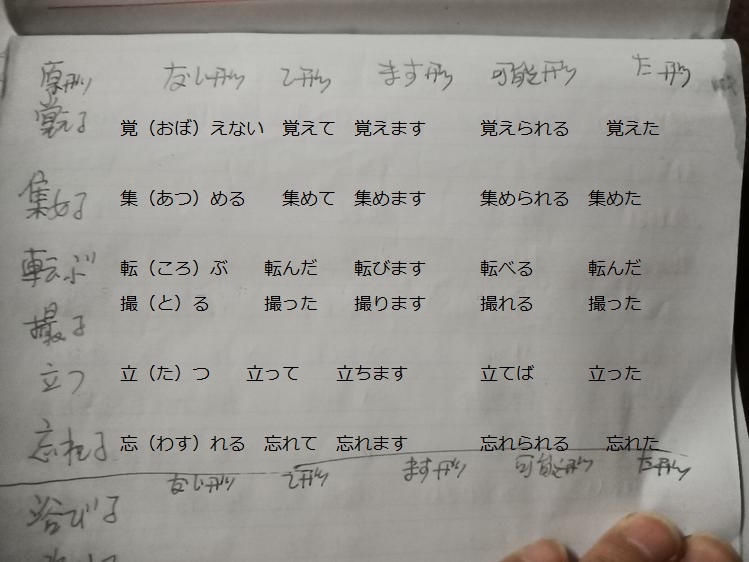 原形 ない形 て形 ます形 可能形 た形
覚える 覚（おぼ）えない 覚えて 覚えます 覚えられる 覚えた
集める 集（あつ）める 集めて 集めます 集められる 集めた
転ぶ 転（ころ）ぶ 転んだ 転びます 転べる 転んだ
撮る 撮（と）る 撮った 撮ります 撮れる 撮った
立つ 立（た）つ 立って 立ちます 立てば 立った
忘れる 忘（わす）れる 忘れて 忘れます 忘れられる 忘れた
ない形 て形 ます形 可能形 た形
浴びる